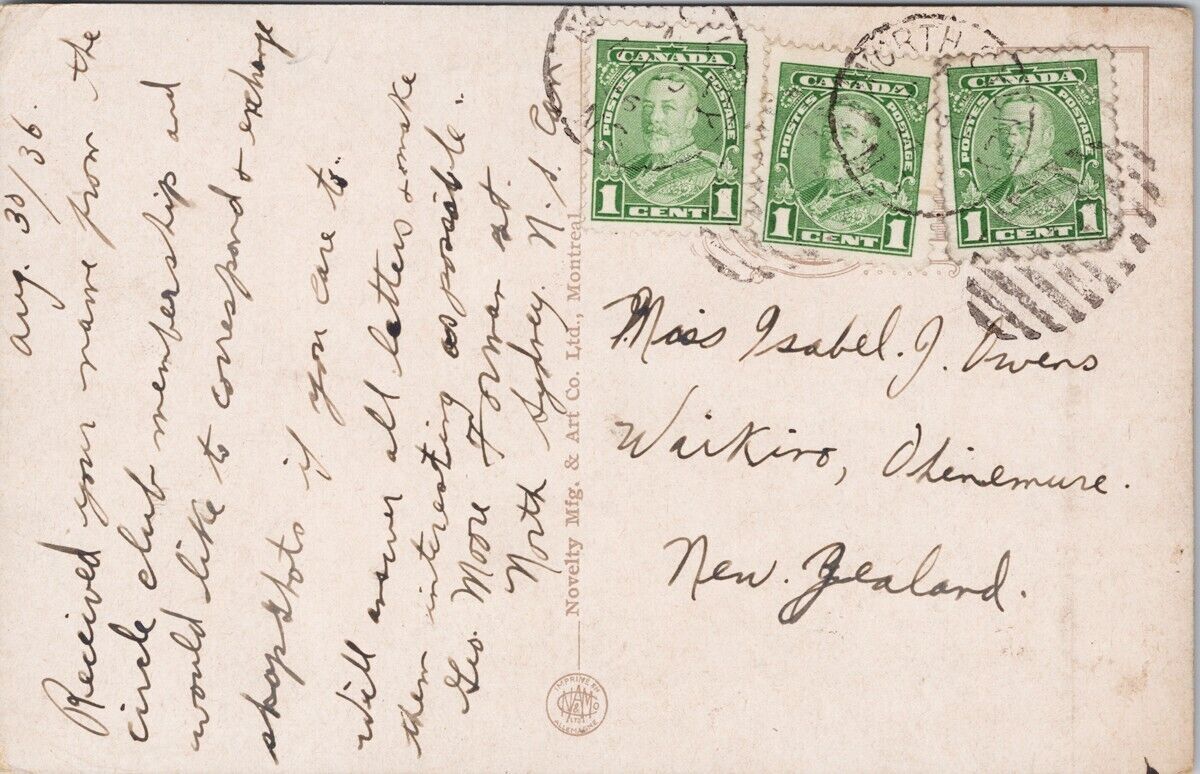 Aug. 30/36.
Received your name from the
circle club membership and
would like to correspond & exchange
snapshots if you care to.
Will answer all letters & make
them interesting as possible.
Geo. Moore Forman St.
North Sydney. N. S. Can
Novelty Mfg. & Art Co. Ltd., Montreal
IMPRIMÉ EN
ALLEMAGNE
CANADA
POSTES POSTAGE
1 CENT 1
CANADA
POSTES POSTAGE
1 CENT 1
CANADA
POSTES POSTAGE
1 CENT 1
NORTH
Miss Isabel. J. Owens
Waikino, Ohinemure.
New. Zealand.